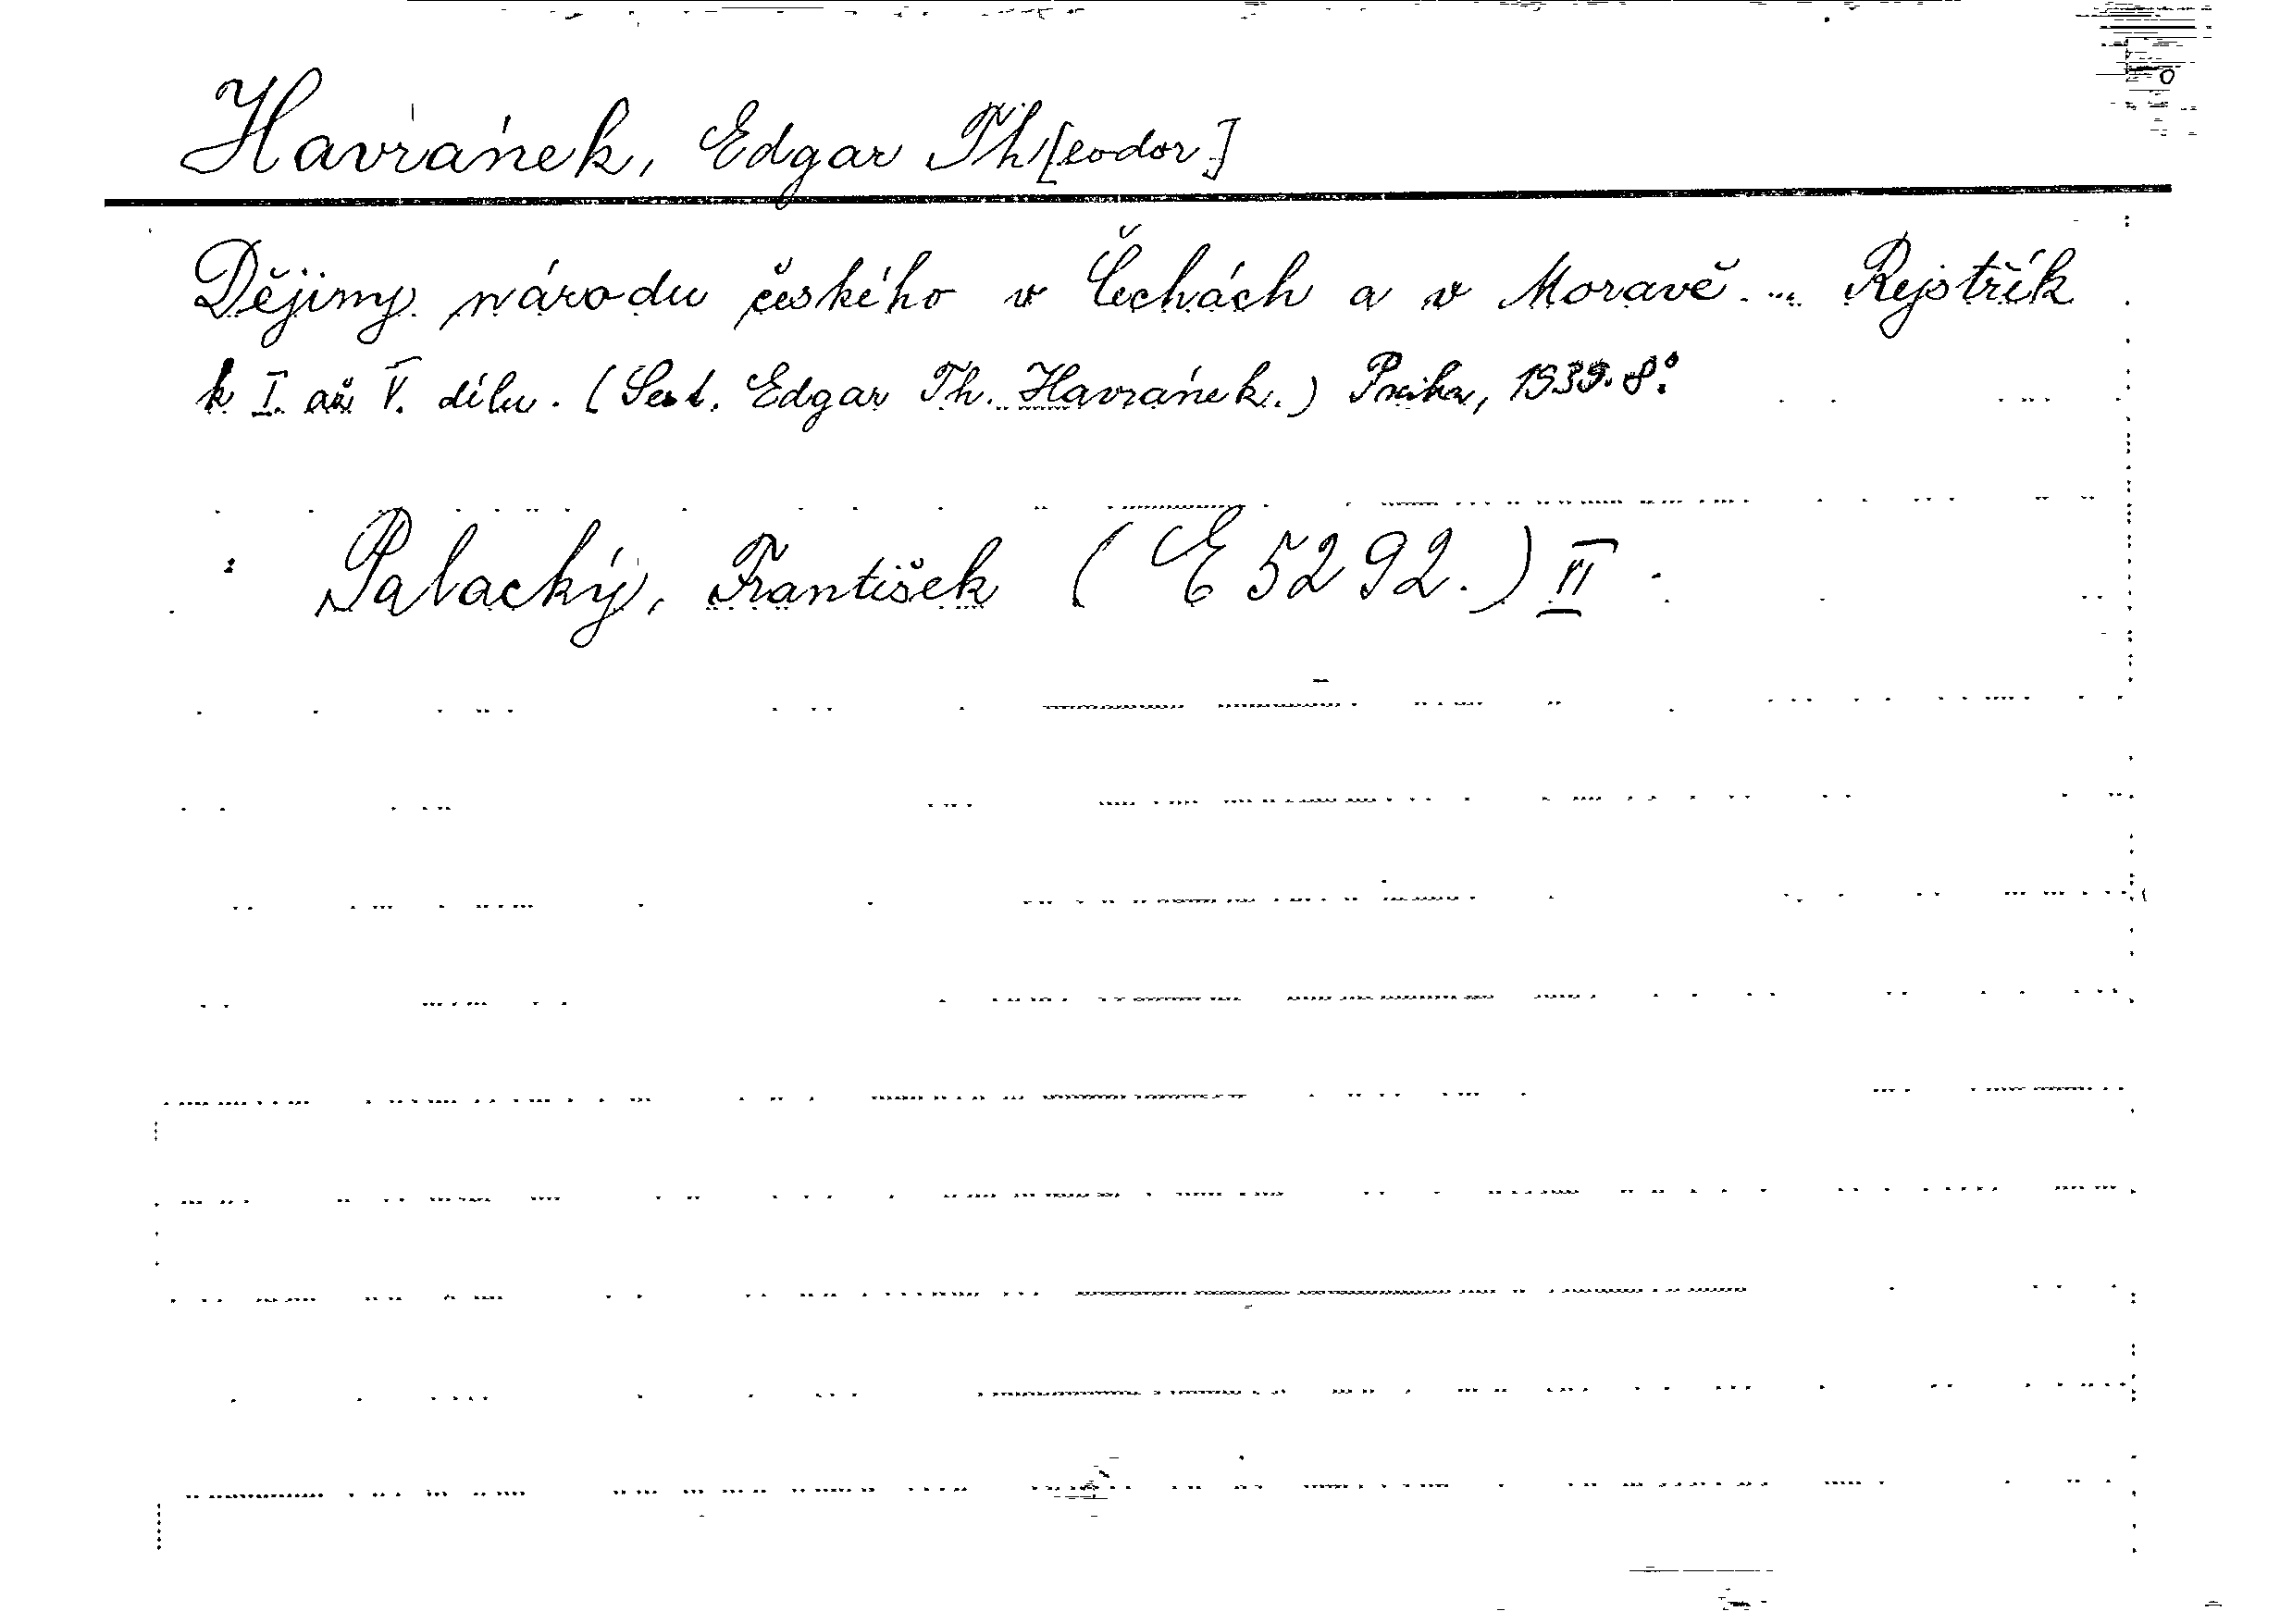 Havránek, Edgar Th[eodor]
Dějiny národu českého v Čechách a v Moravě... Rejstřík
k I. až V. dílu. (Sest. Edgar Th. Havránek.) Praha, 1939. 8°.
Palacký, František (E 5292.) II